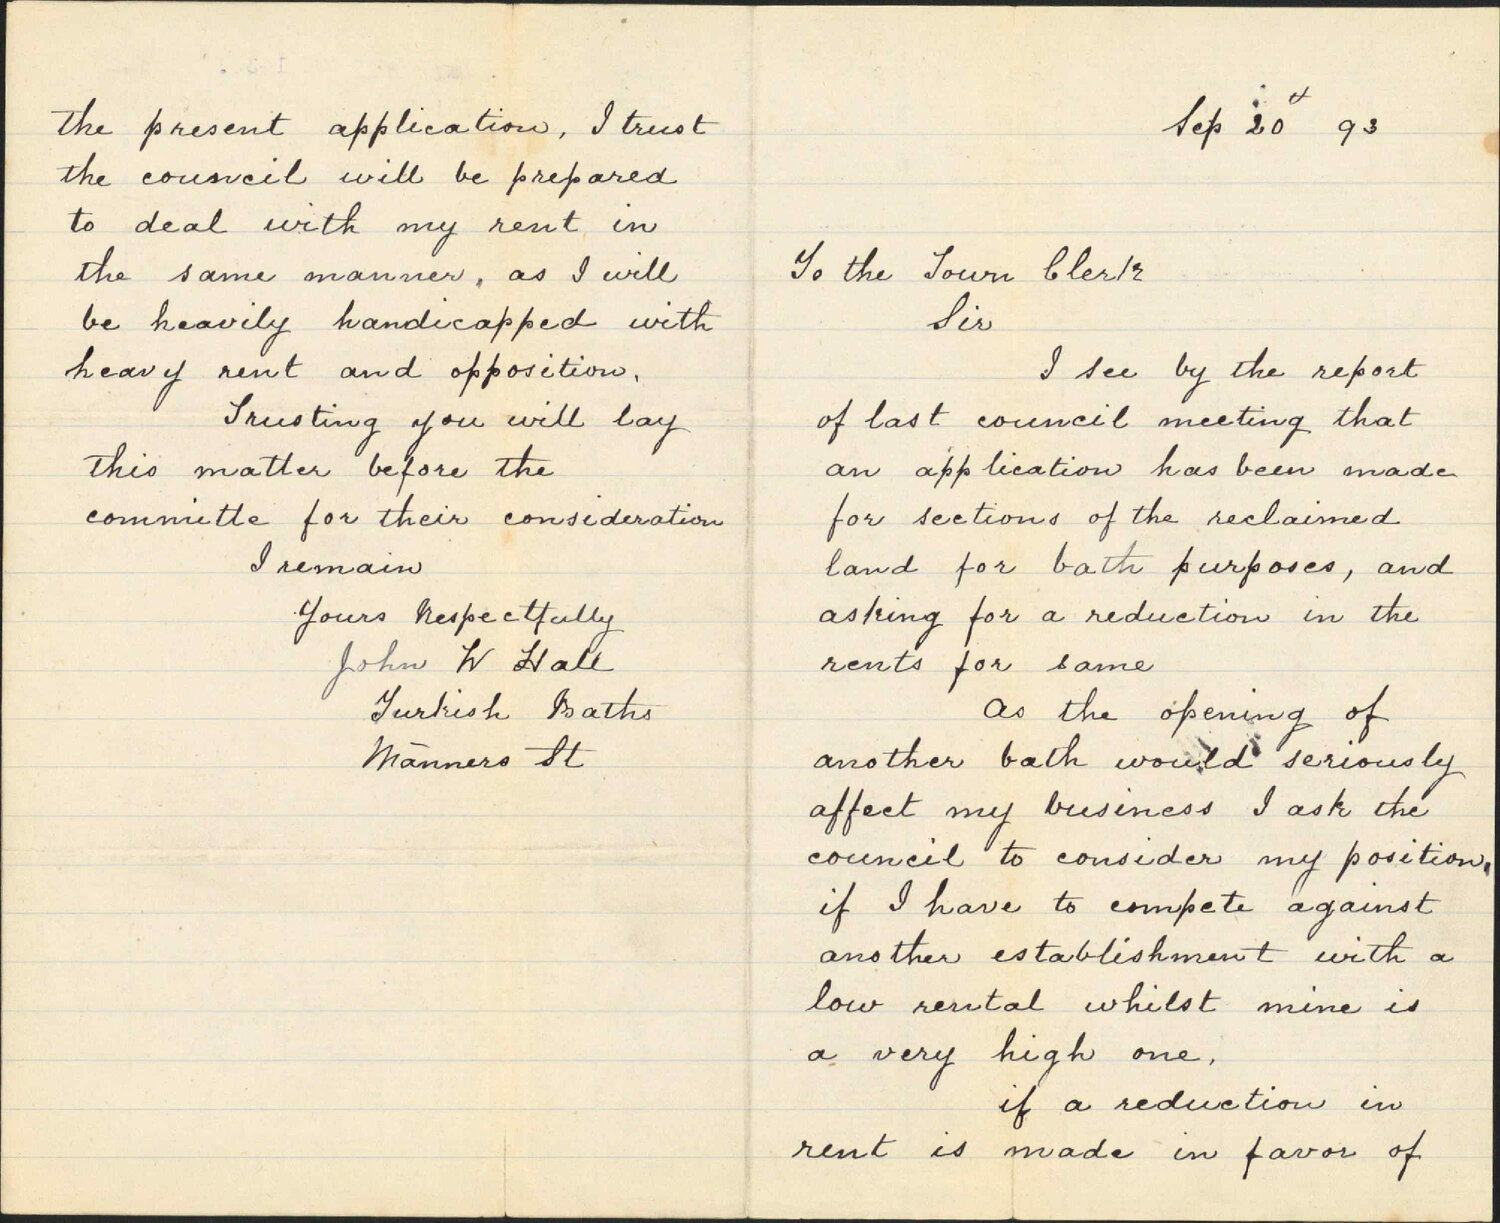 Sep 20th 93
To the Town Clerk
Sir
I see by the report
of last council meeting that
an application has been made
for sections of the reclaimed
land for bath purposes, and
asking for a reduction in the
rents for same
As the opening of
another bath would seriously
affect my business I ask the
council to consider my position,
if I have to compete against
another establishment with a
low rental whilst mine is
a very high one,
if a reduction in
rent is made in favor of
the present application, I trust
the council will be prepared
to deal with my rent in
the same manner, as I will
be heavily handicapped with
heavy rent and opposition,
Trusting you will lay
this matter before the
committe for their consideration
I remain
Yours Respectfully
John W Hall
Turkish Baths
Manners St